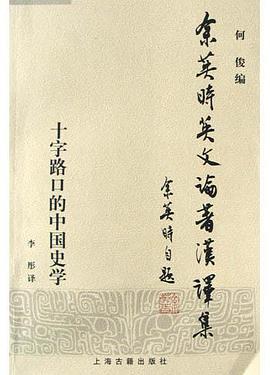 何俊编
余英時英文論著漢譯集
余英时自题
十字路口的中国史学
李彤译
上海古籍出版社